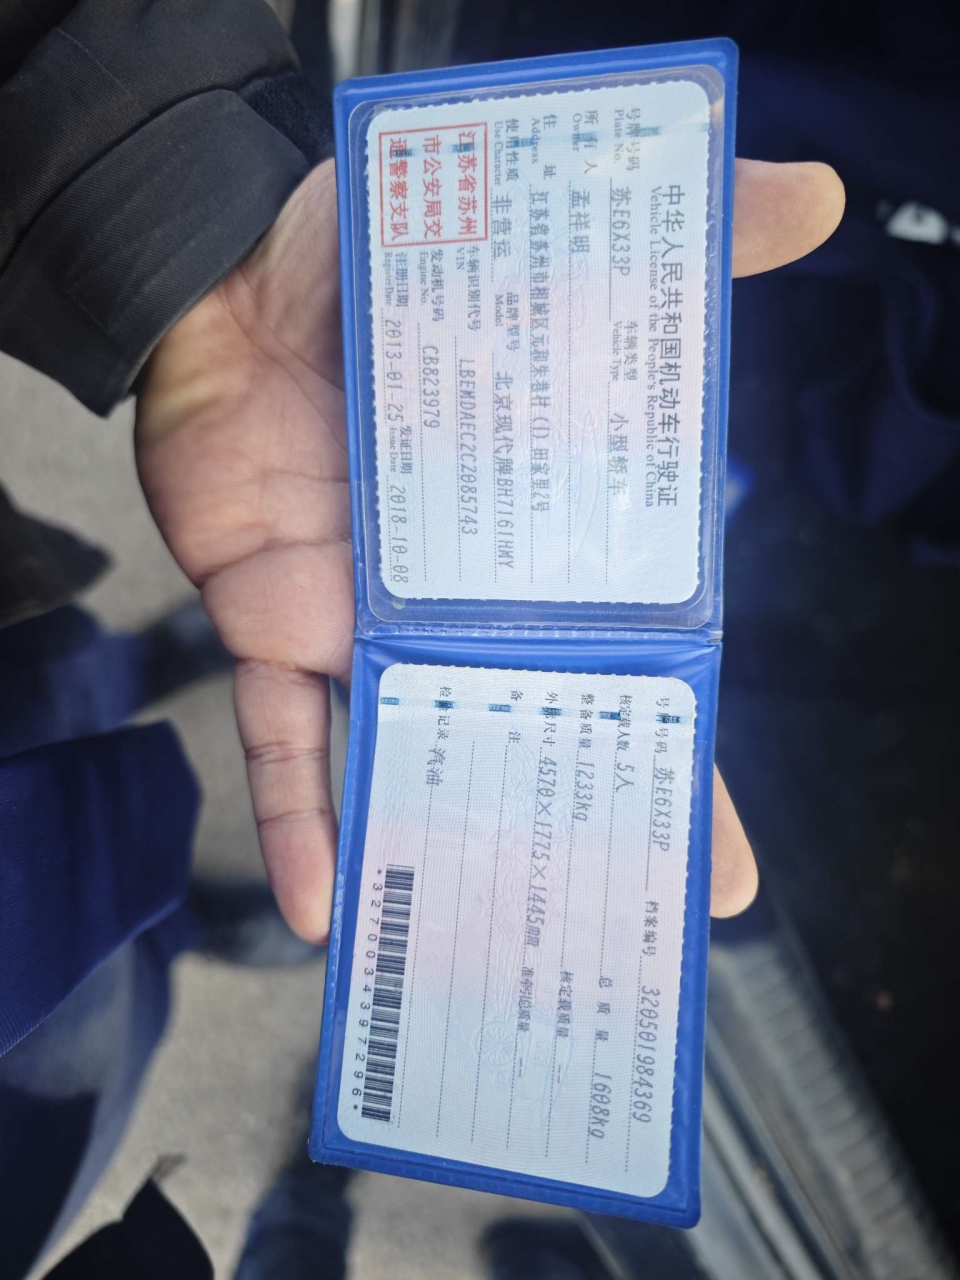 中华人民共和国机动车行驶证
Vehicle License of the People's Republic of China
号牌号码 苏E6X33P 车辆类型 小型轿车
Plate No. Vehicle Type
所有人 孟祥明
Owner
住址 江苏省苏州市相城区元和朱巷村(1)田家里2号
Address
使用性质 非营运 品牌型号 北京现代牌BH7161HMY
Use Character Model
江苏省苏州
市公安局交
通警察支队
车辆识别代号 LBEMDAEC2CZ085743
VIN
发动机号码 CB823979
Engine No.
注册日期 2013-01-25 发证日期 2018-10-08
Register Date Issue Date
号牌号码 苏E6X33P 档案编号 320501984369
核定载人数 5人 总质量 1608kg
整备质量 1233kg 核定载质量
外廓尺寸 4570×1775×1445mm 准牵引总质量 --
备注
检验记录 汽油
*3270034397296*